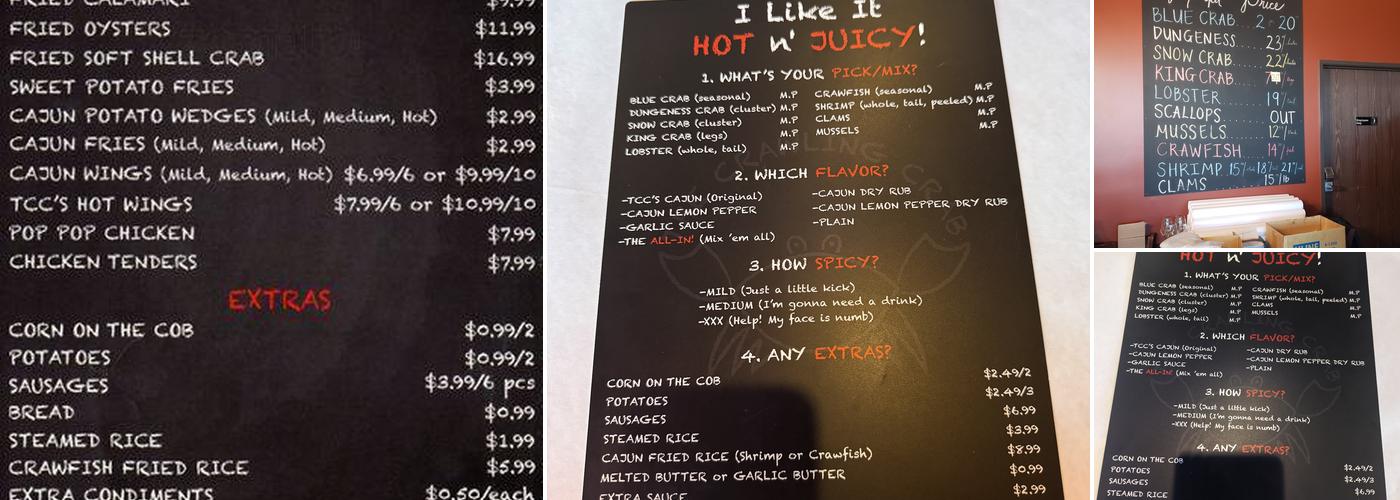 FRIED CALAMARI $9.99
FRIED OYSTERS $11.99
FRIED SOFT SHELL CRAB $16.99
SWEET POTATO FRIES $3.99
CAJUN POTATO WEDGES (Mild, Medium, Hot) $2.99
CAJUN FRIES (Mild, Medium, Hot) $2.99
CAJUN WINGS (Mild, Medium, Hot) $6.99/6 or $9.99/10
TCC'S HOT WINGS $7.99/6 or $10.99/10
POP POP CHICKEN $7.99
CHICKEN TENDERS $7.99
EXTRAS
CORN ON THE COB $0.99/2
POTATOES $0.99/2
SAUSAGES $3.99/6 pcs
BREAD $0.99
STEAMED RICE $1.99
CRAWFISH FRIED RICE $5.99
EXTRA CONDIMENTS $0.50/each
I Like It
HOT n' JUICY!
1. WHAT'S YOUR PICK/MIX?
BLUE CRAB (seasonal) M.P
DUNGENESS CRAB (cluster) M.P
SNOW CRAB (cluster) M.P
KING CRAB (legs) M.P
LOBSTER (whole, tail) M.P
CRAWFISH (seasonal) M.P
SHRIMP (whole, tail, peeled) M.P
CLAMS M.P
MUSSELS M.P
2. WHICH FLAVOR?
-TCC'S CAJUN (Original)
-CAJUN LEMON PEPPER
-GARLIC SAUCE
-THE ALL-IN! (Mix 'em all)
-CAJUN DRY RUB
-CAJUN LEMON PEPPER DRY RUB
-PLAIN
3. HOW SPICY?
-MILD (Just a little kick)
-MEDIUM (I'm gonna need a drink)
-XXX (Help! My face is numb)
4. ANY EXTRAS?
CORN ON THE COB $2.49/2
POTATOES $2.49/3
SAUSAGES $6.99
STEAMED RICE $3.99
CAJUN FRIED RICE (Shrimp or Crawfish) $8.99
MELTED BUTTER or GARLIC BUTTER $0.99
EXTRA SAUCE $2.99
Price
BLUE CRAB 20
DUNGENESS..... 23
SNOW CRAB... 22
KING CRAB....
LOBSTER .... 19
SCALLOPS OUT
MUSSELS ..... 12
CRAWFISH.... 14
SHRIMP 15 18 21
CLAMS 15 lb
HOT n' JUICY!
1. WHAT'S YOUR PICK/MIX?
BLUE CRAB (seasonal) M.P
DUNGENESS CRAB (cluster) M.P
SNOW CRAB (cluster) M.P
KING CRAB (legs) M.P
LOBSTER (whole, tail) M.P
CRAWFISH (seasonal) M.P
SHRIMP (whole, tail, peeled) M.P
CLAMS M.P
MUSSELS M.P
2. WHICH FLAVOR?
-TCC'S CAJUN (Original)
-CAJUN LEMON PEPPER
-GARLIC SAUCE
-THE ALL-IN! (Mix 'em all)
-CAJUN DRY RUB
-CAJUN LEMON PEPPER DRY RUB
-PLAIN
3. HOW SPICY?
-MILD (Just a little kick)
-MEDIUM (I'm gonna need a drink)
-XXX (Help! My face is numb)
4. ANY EXTRAS?
CORN ON THE COB $2.49/2
POTATOES $2.49/3
SAUSAGES $6.99
STEAMED RICE